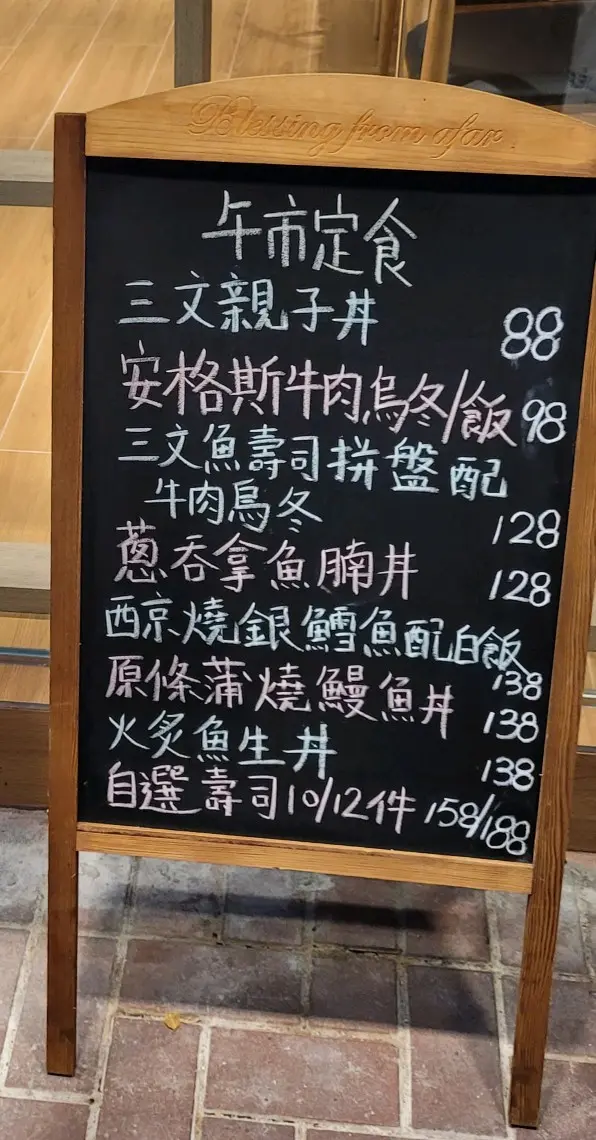 Blessing from afar
午市定食
三文親子丼 88
安格斯牛肉烏冬/飯 98
三文魚壽司拼盤配
牛肉烏冬 128
蔥吞拿魚腩丼 128
西京燒銀鱈魚配白飯 138
原條蒲燒鰻魚丼 138
火炙魚生丼 138
自選壽司10/12件 158/188